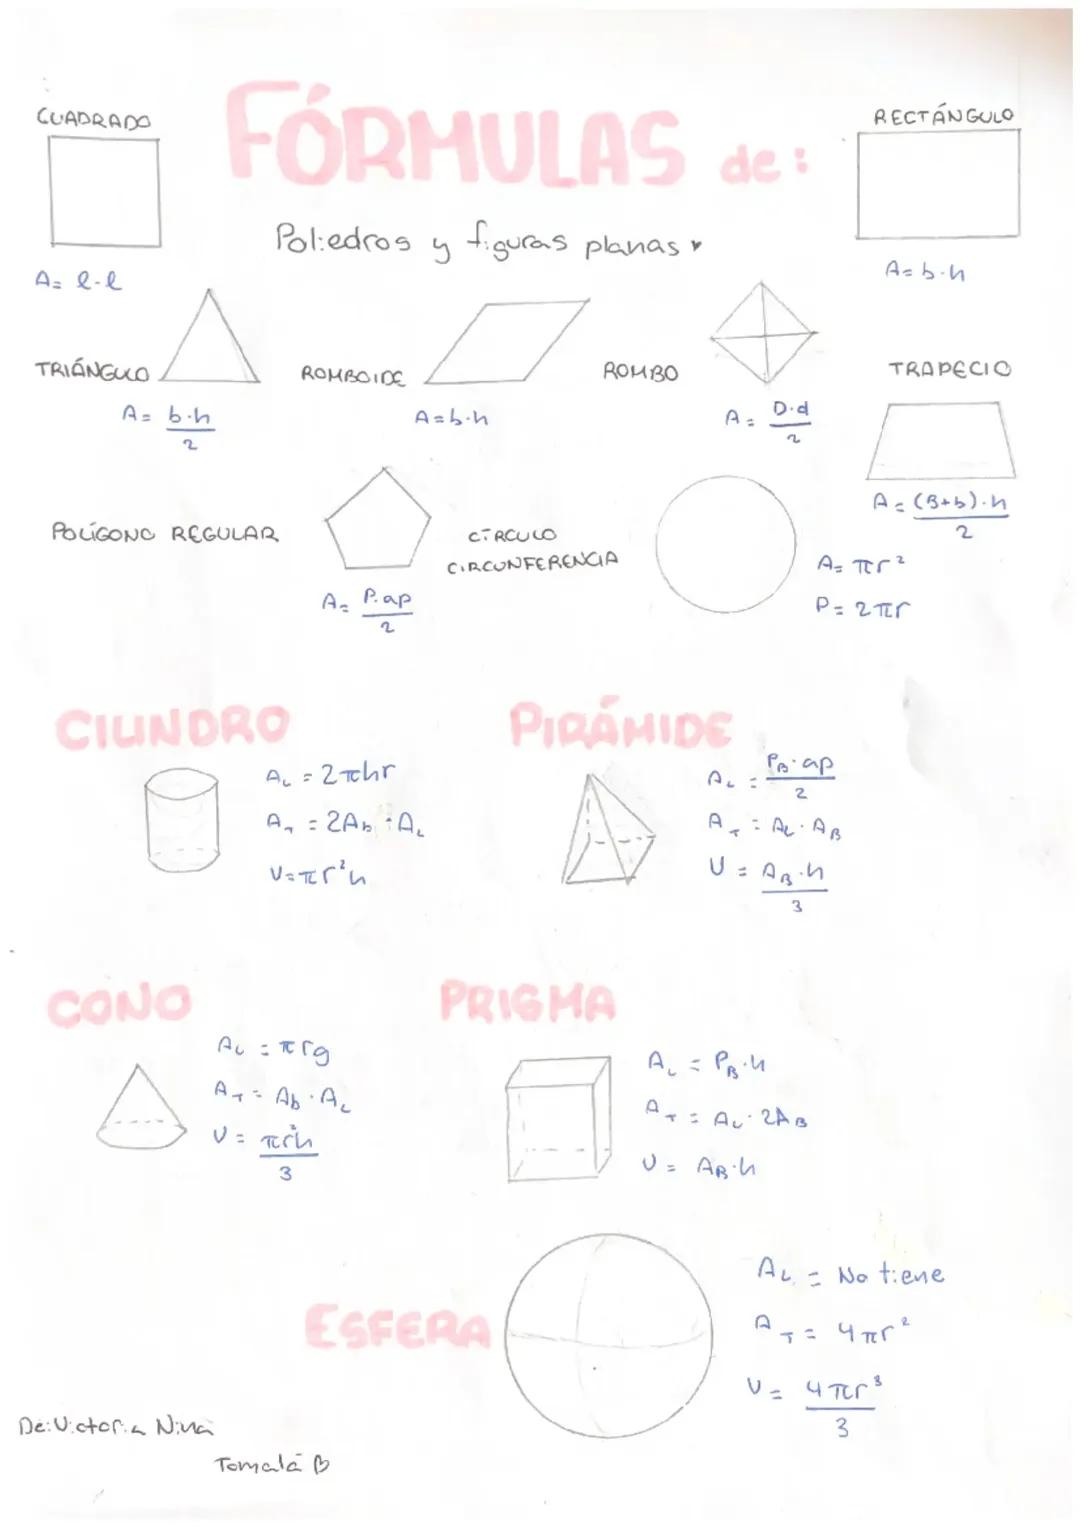 CUADRADO
FÓRMULAS de:
RECTÁNGULO
Poliedros y figuras planas ♥
A= l·l
A= b·h
TRIÁNGULO
ROMBOIDE
ROMBO
TRAPECIO
A= b·h
2
A=b·h
A= D·d
2
A= (B+b)·h
2
POLÍGONO REGULAR
CÍRCULO
CIRCUNFERENCIA
A= P.ap
2
A= πr²
P= 2πr
CILINDRO
A_L = 2πhr
A_T = 2Ab · A_L
V=πr²h
PIRÁMIDE
A_L = P_B·ap
2
A_T = A_L·A_B
V = A_B·h
3
CONO
A_L = πrg
A_T = Ab·A_L
V = πr²h
3
PRISMA
A_L = P_B·h
A_T = A_L·2A_B
V = A_B·h
ESFERA
A_L = No tiene
A_T = 4πr²
V = 4πr³
3
De: Victoria Nina
Tomalá ♡